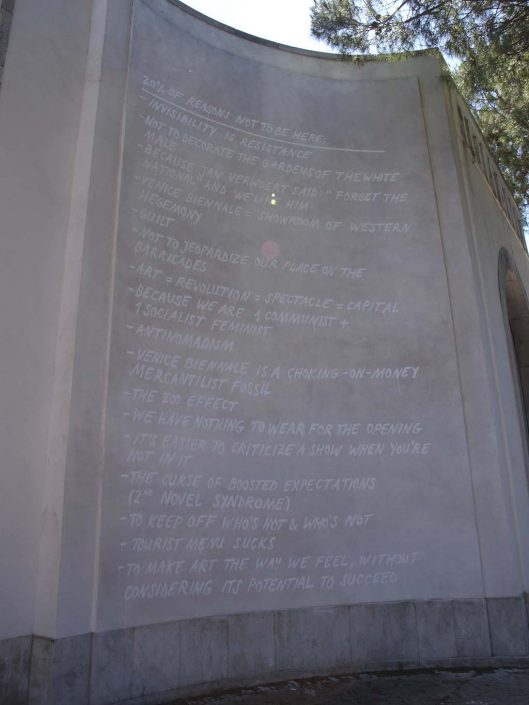 20% OF REASONS NOT TO BE HERE:
- INVISIBILITY IS RESISTANCE
- NOT TO DECORATE THE GARDENS OF THE WHITE
MALE
- BECAUSE JAN VERWOERT SAID: " FORGET THE
NATIONAL" AND WE LIKE HIM
- VENICE BIENNALE = SHOWROOM OF WESTERN
HEGEMONY
- GUILT
- NOT TO JEOPARDIZE OUR PLACE ON THE
BARRICADES
- ART = REVOLUTION = SPECTACLE = CAPITAL
- BECAUSE WE ARE 1 COMMUNIST +
1 SOCIALIST FEMINIST
- ANTINOMADISM
- VENICE BIENNALE IS A CHOKING-ON-MONEY
MERCANTILIST FOSSIL
- THE ZOO EFFECT
- WE HAVE NOTHING TO WEAR FOR THE OPENING
- IT'S EASIER TO CRITICIZE A SHOW WHEN YOU'RE
NOT IN IT
- THE CURSE OF BOOSTED EXPECTATIONS
(2ND NOVEL SYNDROME)
- TO KEEP OFF WHO'S HOT & WHO'S NOT
- TOURIST MENU SUCKS
- TO MAKE ART THE WAY WE FEEL, WITHOUT
CONSIDERING ITS POTENTIAL TO SUCCEED